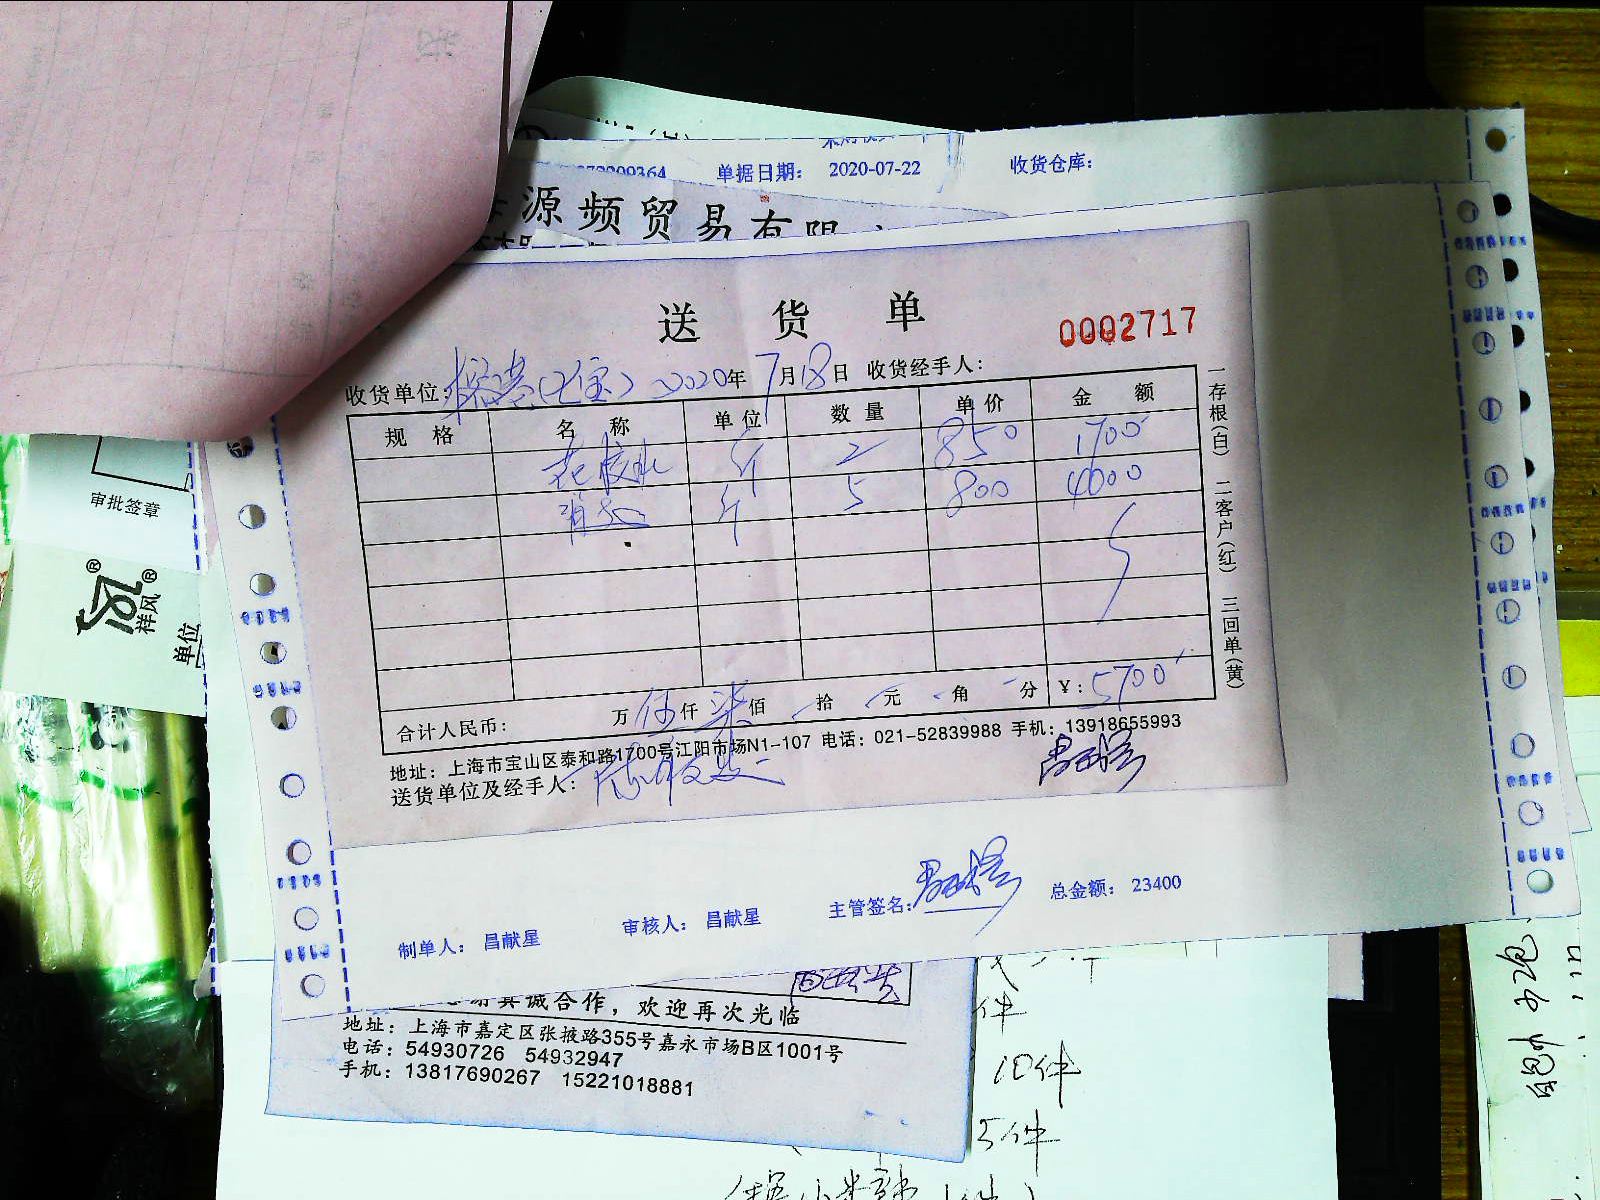 单据日期: 2020-07-22 收货仓库:
源频贸易有限
送货单
0002717
收货单位: (七宝) 2020年 7月18日 收货经手人:
规格 名称 单位 数量 单价 金额
花胶 斤 2 850 1700
斤 5 800 4000
合计人民币: 万 伍仟 柒佰 拾 元 角 分 ¥: 5700
地址: 上海市宝山区泰和路1700号江阳市场N1-107 电话: 021-52839988 手机: 13918655993
送货单位及经手人:
一存根(白) 二客户(红) 三回单(黄)
制单人: 昌献星 审核人: 昌献星 主管签名: 总金额: 23400
真诚合作，欢迎再次光临
地址: 上海市嘉定区张掖路355号嘉永市场B区1001号
电话: 54930726 54932947
手机: 13817690267 15221018881
审批签章
祥风
单位
件
10件
5件